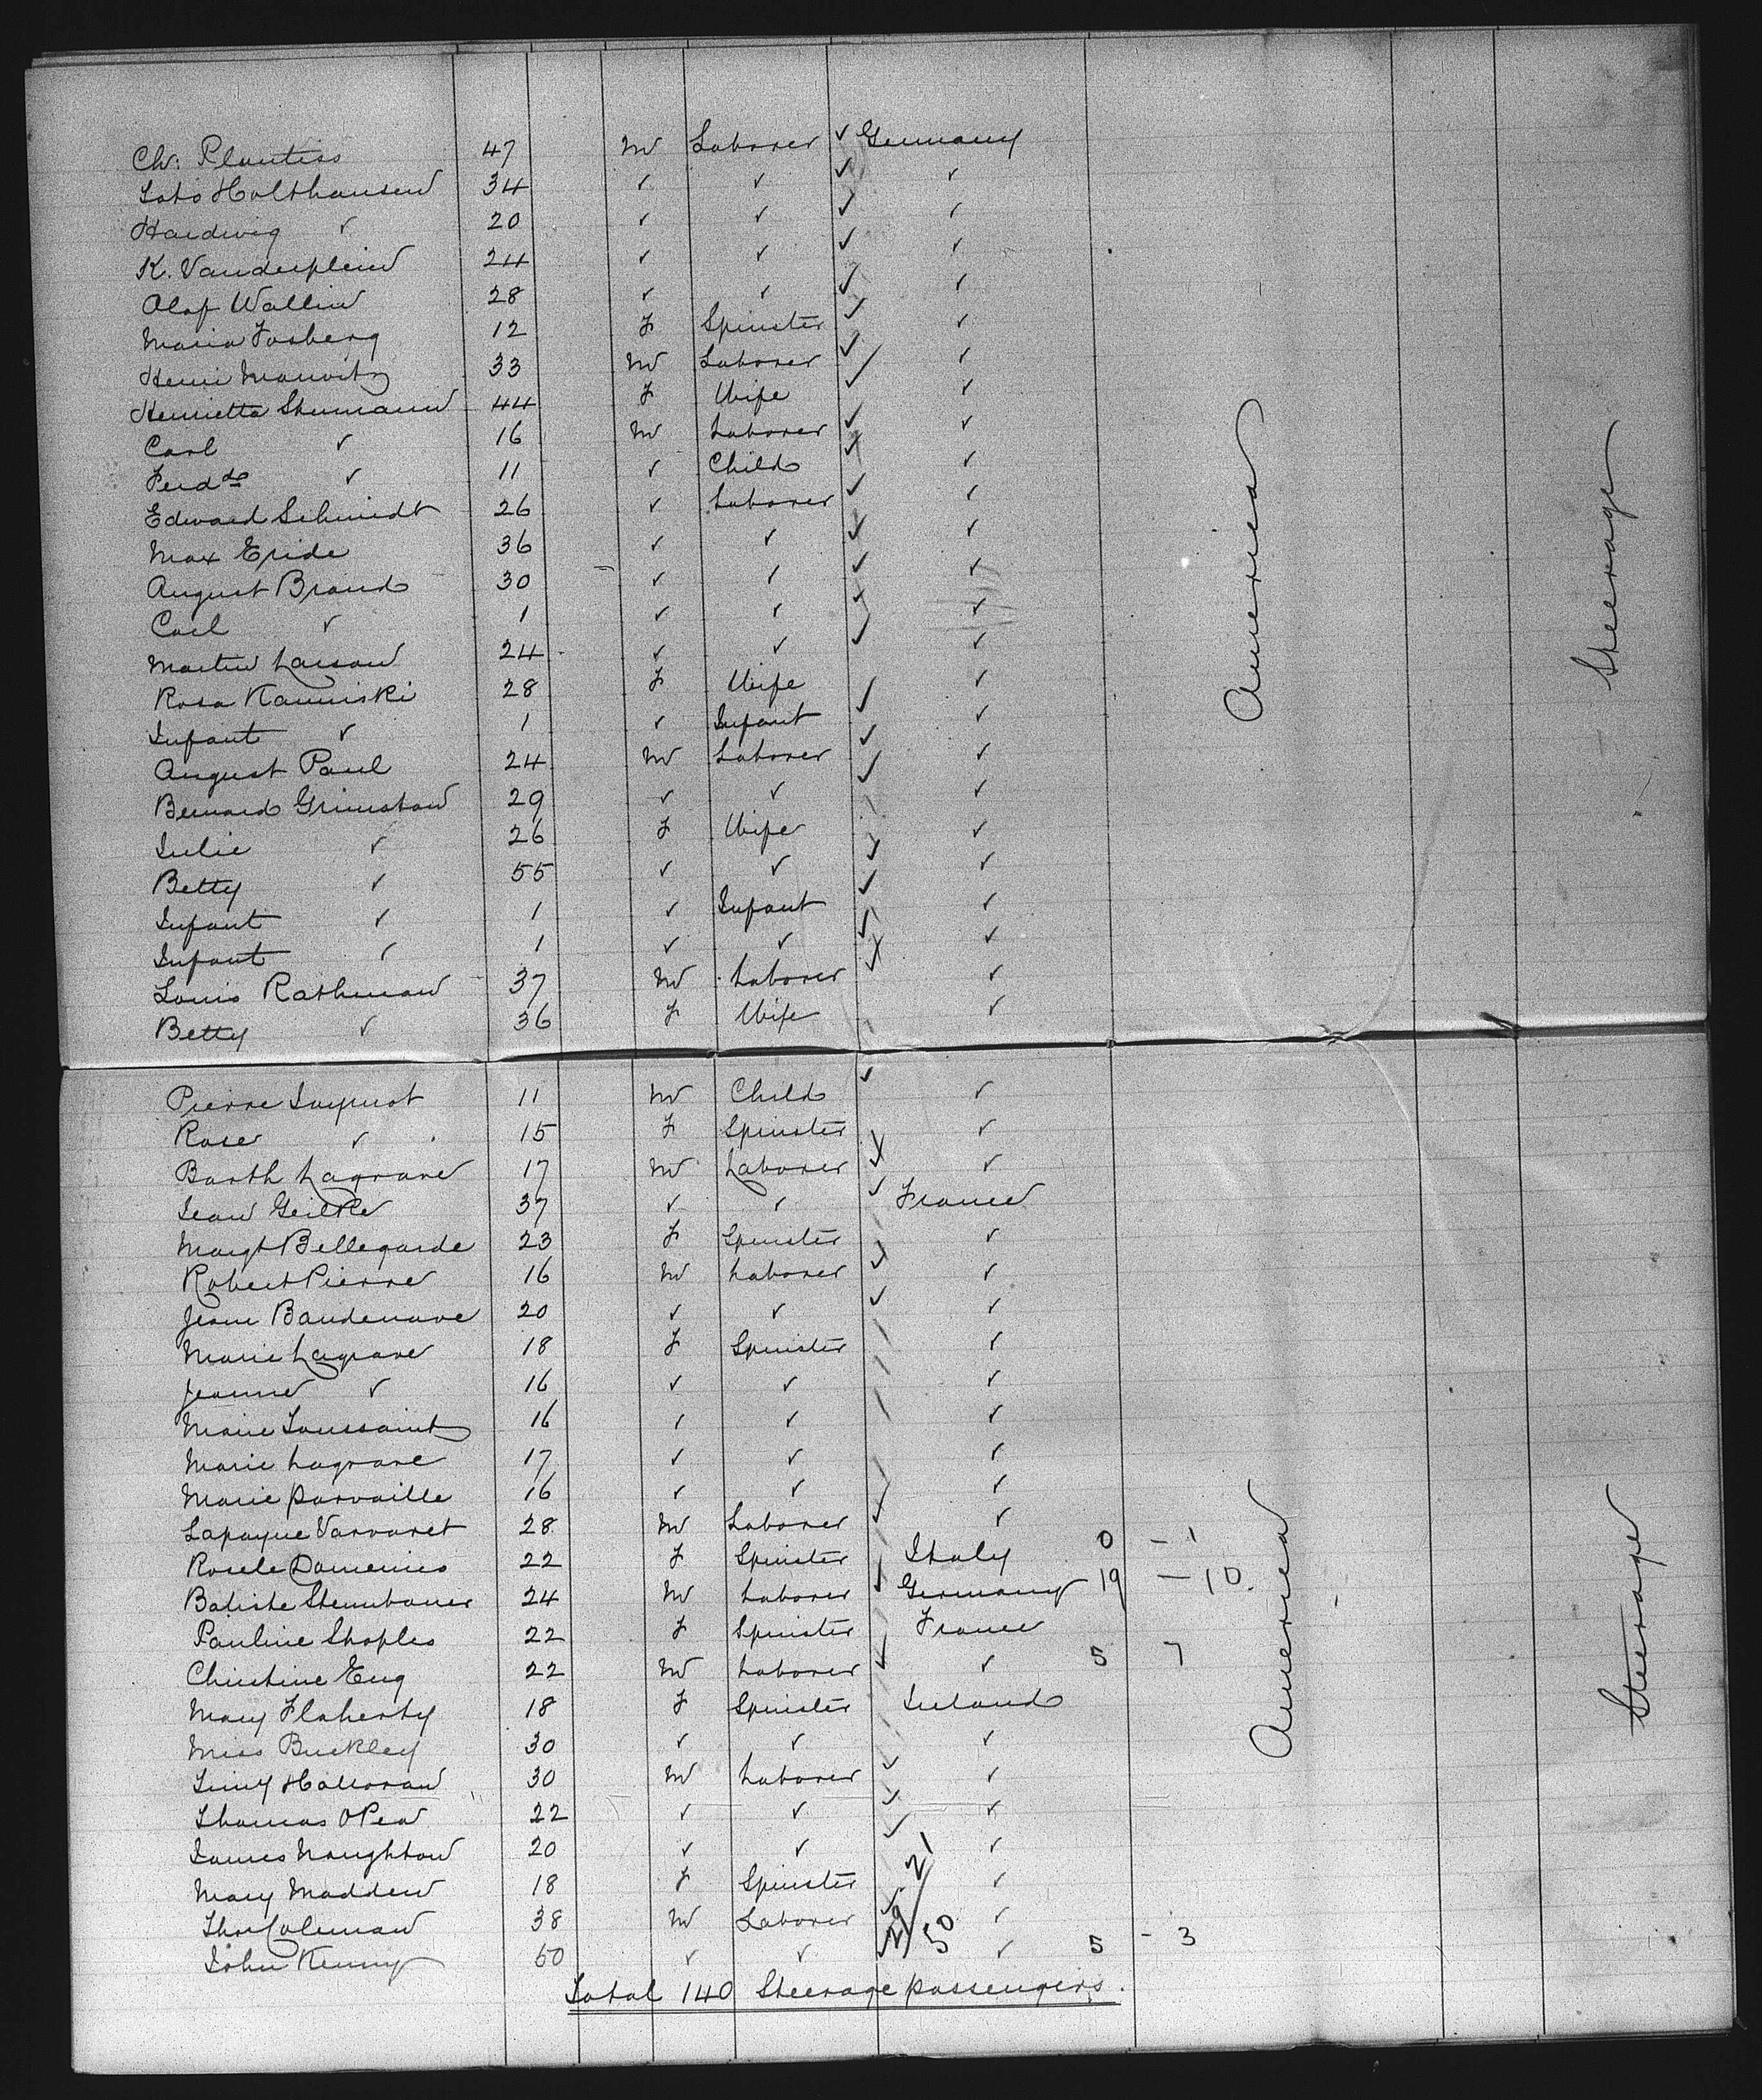 Ch: Plautiss 47 M Laborer ✓ Germany
Holthausen 34 ✓ ✓ ✓ ✓
Hardwig ✓ 20 ✓ ✓ ✓ ✓
K. Vanderplein 24 ✓ ✓ ✓ ✓
Olof Wallin 28 ✓ ✓ ✓ ✓
Maria Fosberg 12 F Spinster ✓ ✓
Henri Manvitz 33 M Laborer ✓ ✓
Henrietta Shumann 44 F Wife ✓ ✓
Carl ✓ 16 M Laborer ✓ ✓
Ferd ✓ 11 ✓ Child ✓ ✓
Edward Schmidt 26 ✓ Laborer ✓ ✓
Max Eride 36 ✓ ✓ ✓ ✓
August Brand 30 ✓ ✓ ✓ ✓
Carl ✓ 1 ✓ ✓ ✓ ✓
Martin Larson 24 ✓ ✓ ✓ ✓
Rosa Kaminski 28 F Wife ✓
Infant ✓ 1 ✓ Infant ✓ ✓
August Paul 24 M Laborer ✓ ✓
Bernard Grimshaw 29 ✓ ✓ ✓ ✓
Julie ✓ 26 F Wife ✓
Betty ✓ 55 ✓ ✓ ✓ ✓
Infant ✓ 1 ✓ Infant ✓ ✓
Infant ✓ 1 ✓ ✓ ✓ ✓
Louis Rathman 37 M Laborer ✓ ✓
Betty ✓ 36 F Wife ✓
America
Steerage
Pierre Luquot 11 M Child ✓ ✓
Rose ✓ 15 F Spinster ✓
Barth Lagrave 17 M Laborer ✓ ✓
Jean Geilke 37 ✓ ✓ ✓ France
Margt Bellegarde 23 F Spinster ✓
Robert Pierre 16 M Laborer ✓ ✓
Jean Baudenave 20 ✓ ✓ ✓ ✓
Marie Lagrave 18 F Spinster ✓
Jeanne ✓ 16 ✓ ✓ ✓
Marie Toussaint 16 ✓ ✓ ✓
Marie Lagrave 17 ✓ ✓ ✓
Marie Parvaille 16 ✓ ✓ ✓
Lapayue Varvaret 28 M Laborer ✓ ✓
Rosele Domenico 22 F Spinster Italy 0 - 1
Batiste Stemboner 24 M Laborer ✓ Germany 19 - 10
Pauline Shoples 22 F Spinster France
Christine Eug 22 M Laborer ✓ ✓ 5 7
Mary Flaherty 18 F Spinster Ireland
Miss Buckley 30 ✓ ✓ ✓
Halloran 30 M Laborer ✓ ✓
Thomas OPea 22 ✓ ✓ ✓ ✓
James Naughton 20 ✓ ✓ ✓ ✓
Mary Madden 18 F Spinster 21 ✓
Thos Coleman 38 M Laborer ✓ 29 50 ✓
John Kenny 50 ✓ ✓ ✓ ✓ 5 - 3
America
Steerage
Total 140 Steerage passengers.